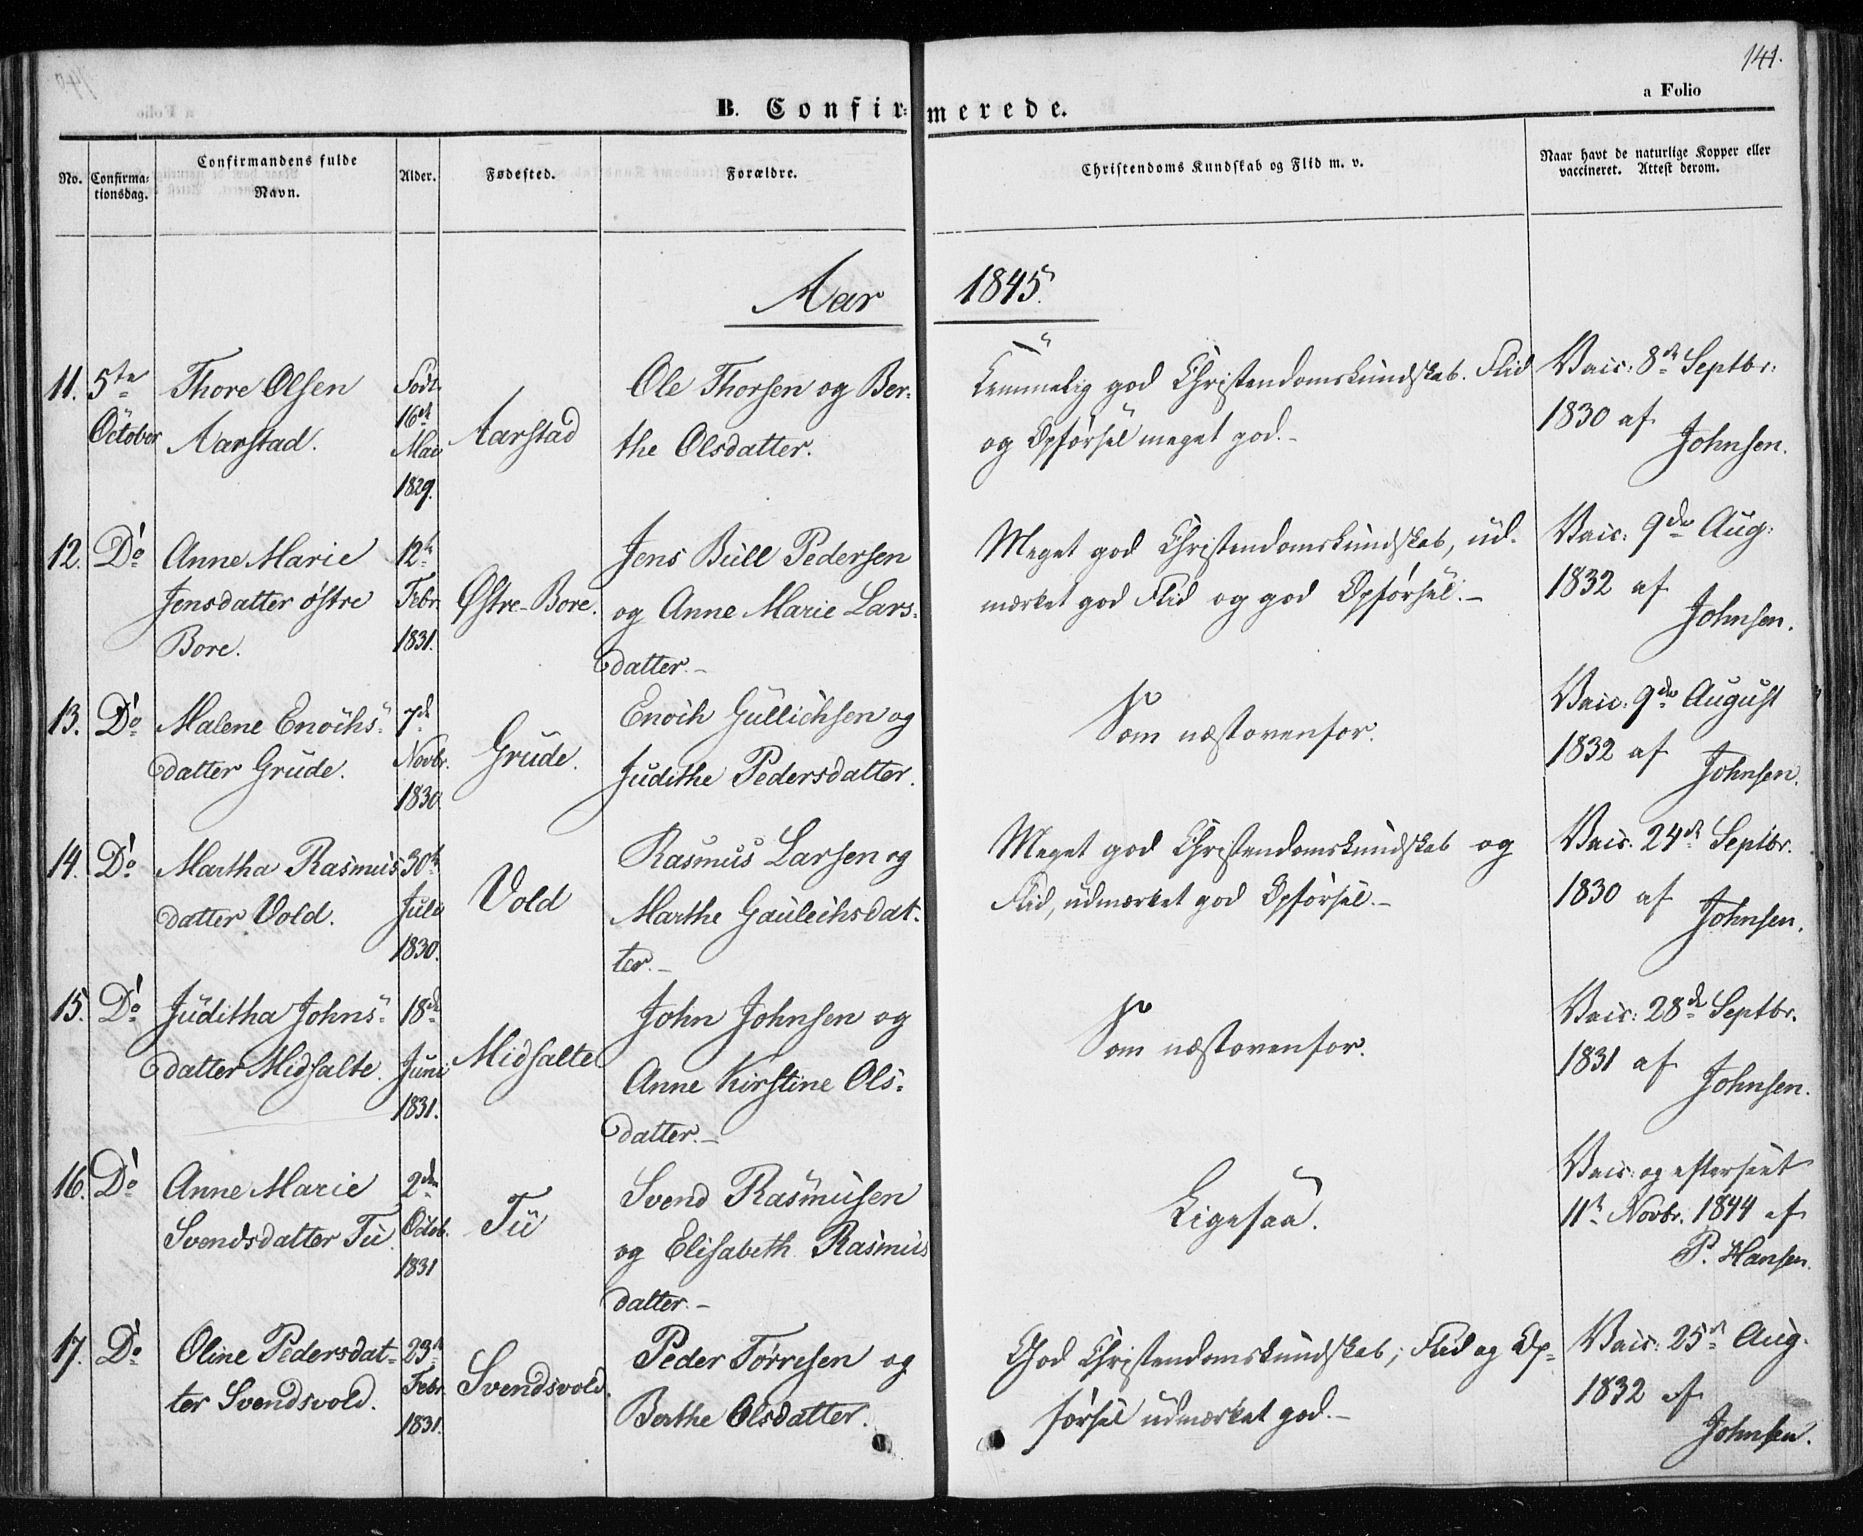 141.
a Folio
B. Confirmerede.
No.
Confirma=
tionsdag.
Confirmandens fulde
Navn.
Alder.
Fødested.
Forældre.
Christendoms Kundskab og Flid m. v.
Naar havt de naturlige Kopper eller
vaccineret. Attest derom.
Aar 1845.
11.
5te
October
Thore Olsen
Aarstad.
Født
16de
Mai
1829.
Aarstad
Ole Thorsen og Ber-
the Olsdatter.
Temmelig god Christendomskundskab. Flid
og Opførsel meget god.-
Vacc: 8de Septbr:
1830 af
Johnsen.
12.
Do
Anne Marie
Jensdatter østre
Bore.
12te
Febr.
1831.
Østre-Bore.
Jens Bull Pedersen
og Anne Marie Lars-
datter.-
Meget god Christendomskundskab, ud-
mærket god Flid og god Opførsel.-
Vacc: 9de Aug:
1832 af
Johnsen.
13.
Do
Malene Enochs-
datter Grude.
7de
Novbr.
1830.
Grude.
Enoch Gullichsen og
Judithe Pedersdatter.
Som næstovenfor.
Vacc: 9de August
1832 af
Johnsen.
14.
Do
Martha Rasmus-
datter Vold.
30te
Juli
1830.
Vold
Rasmus Larsen og
Marthe Gaulichsdat-
ter.-
Meget god Christendomskundskab og
Flid, udmærket god Opførsel.-
Vacc: 24de Septbr.
1830 af
Johnsen.
15.
Do
Juditha Johns-
datter Midsalte.
18de
Juni
1831.
Midsalte
John Johnsen og
Anne Kirstine Ols-
datter.-
Som næstovenfor.
Vacc: 28de Septbr.
1831 af
Johnsen.
16.
Do
Anne Marie
Svendsdatter Tu.
2den
Octob.
1831
Tu
Svend Rasmusen
og Elisabeth Rasmus
datter.-
Ligesaa.
Vacc: og efterseet
11te Novbr. 1844 af
P. Hansen.
17.
Do
Oline Pedersdat-
ter Svendsvold.
23de
Febr.
1831.
Svendsvold.
Peder Tørresen og
Berthe Olsdatter.
God Christendomskundskab; Flid og Op-
førsel udmærket god.-
Vacc: 25de Aug.
1832 af
Johnsen.